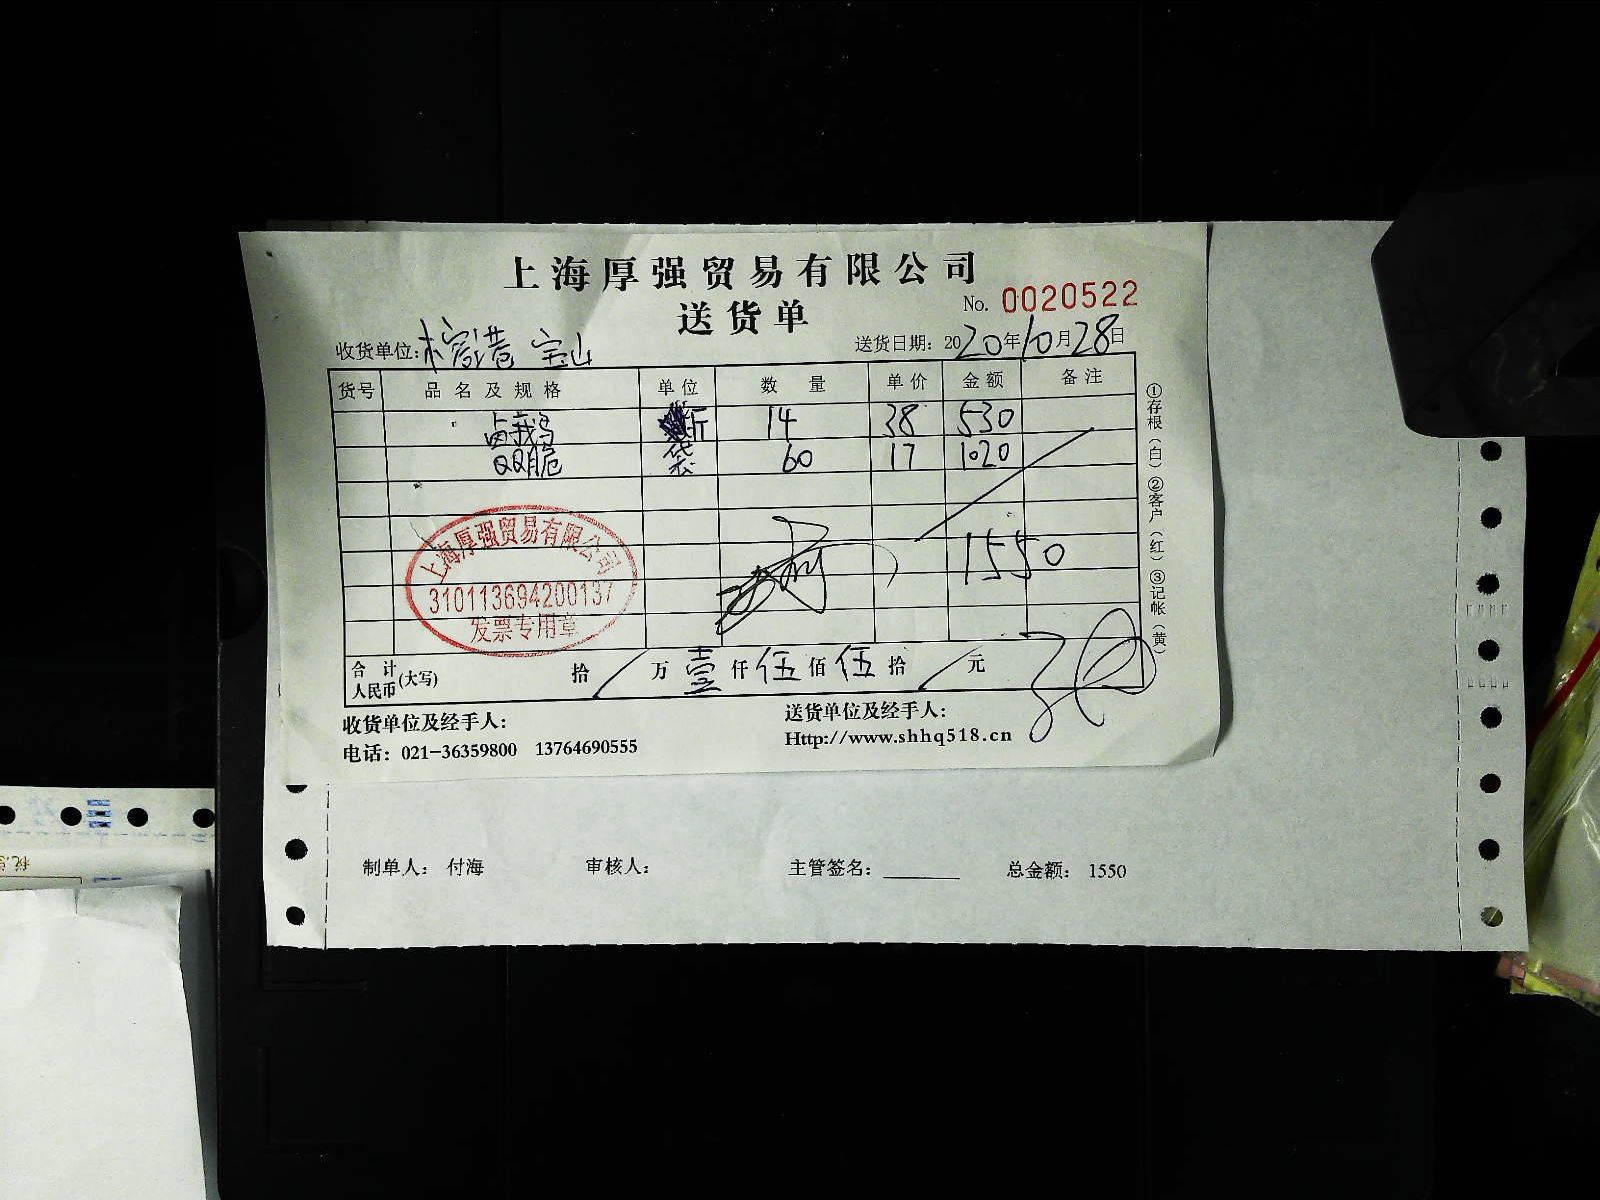 上海厚强贸易有限公司
送货单
No. 0020522
收货单位: 宝山
送货日期: 2020年10月28日
货号 品名及规格 单位 数量 单价 金额 备注
卤鹅 斤 14 38 530
QQ脆 袋 60 17 1020
1550
上海厚强贸易有限公司
310113694200137
发票专用章
合计人民币(大写) 拾 / 万 壹 仟 伍 佰 伍 拾 / 元
收货单位及经手人:
送货单位及经手人:
电话: 021-36359800 13764690555
Http://www.shhq518.cn
①存根(白)②客户(红)③记帐(黄)
制单人: 付海 审核人: 主管签名: 总金额: 1550